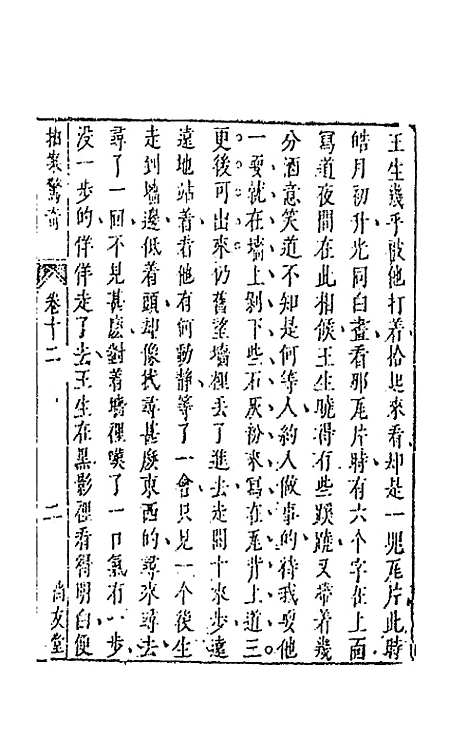 王生幾乎被他打着拾起來看却是一塊瓦片此時
皓月初升光同白晝看那瓦片時有六个字在上面
寫道夜間在此相候王生曉得有些蹊蹺又帶着幾
分酒意笑道不知是何等人約人做事的待我耍他
一耍就在墻上剝下些石灰粉來寫在瓦背上道三
更後可出來仍舊望墻裡丢了進去走開十來步遠
遠地站着看他有何動静等了一會只見一个後生
走到墻邊低着頭却像找尋甚麽東西的尋來尋去
尋了一回不見甚麽對着墻裡嘆了一口氣有一步
没一步的佯佯走了去王生在黑影裡看得明白便
拍案驚奇 卷十二 二 尚友堂